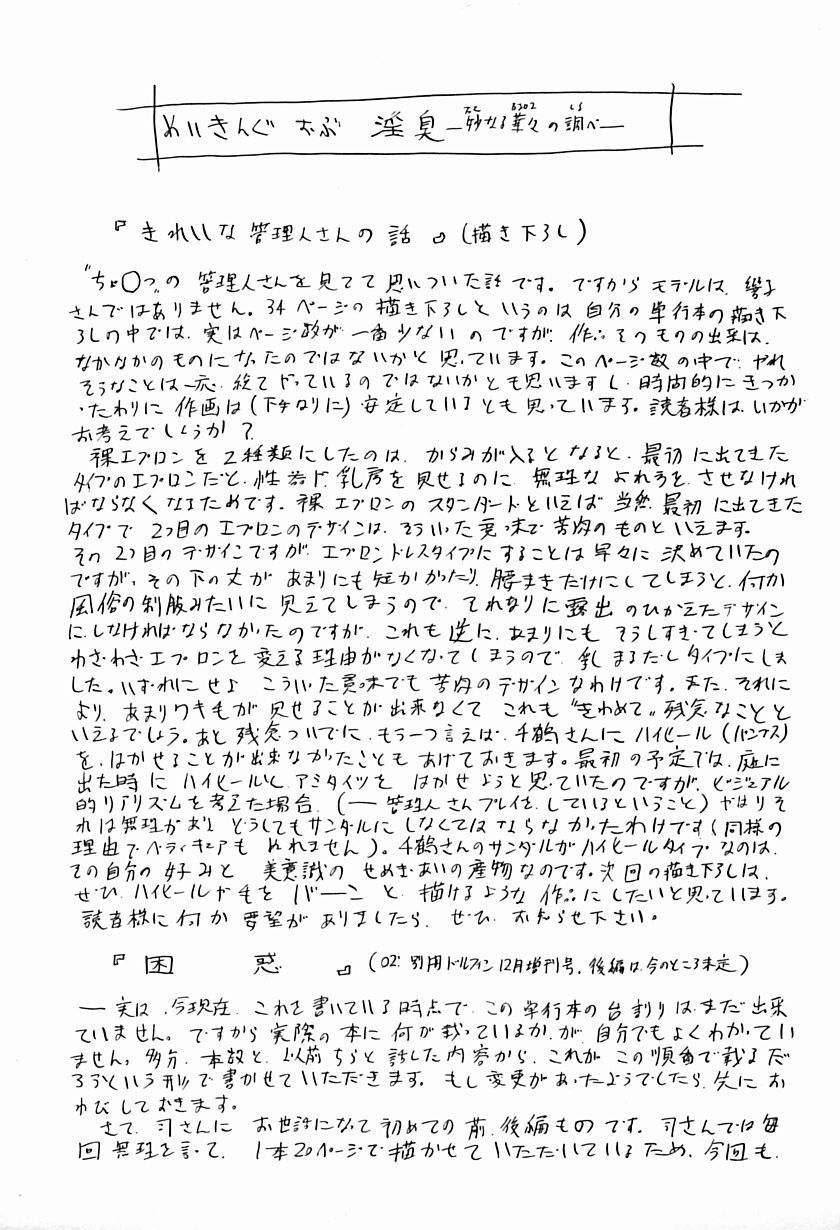 めいきんぐ おぶ 淫臭―妙なる華々の調べ―
『きれいな管理人さんの話』(描き下ろし)
"ちょ〇っ"の 管理人さんを見てて思いついた話です。ですからモデルは、響子
さんではありません。34ページの描き下ろしというのは自分の単行本の描き下
ろしの中では、実はページ数が一番少ないのですが、作品そのものの出来は、
なかなかのものになったのではないかと思っています。このページ数の中で、やれ
そうなことは一応、総てやっているのではないかとも思いますし、時間的にきつか
ったわりに作画は(下手なりに)安定しているとも思っています。読者様は、いかが
お考えでしょうか?
裸エプロンを2種類にしたのは、からみが入るとなると、最初に出てきた
タイプのエプロンだと、性器や乳房を見せるのに、無理なよれ方を、させなけれ
ばならなくなるためです。裸エプロンのスタンダードといえば当然、最初に出てきた
タイプで2つ目のエプロンのデザインは、そういった意味で苦肉のものといえます。
その2つ目のデザインですが、エプロンドレスタイプにすることは早々に決めていたの
ですが、その下の丈があまりにも短かかったり、腰まきだけにしてしまうと、何か
風俗の制服みたいに見えてしまうので、それなりに露出のひかえたデザイン
にしなければならなかったのですが、これも逆に、あまりにもそうしすぎてしまうと
わざわざエプロンを変える理由がなくなってしまうので、乳まるだしタイプにしま
した。いずれにせよ こういった意味でも苦肉のデザインなわけです。また、それに
より、あまりワキ毛が見せることが出来なくて これも"きわめて"残念なことと
いえるでしょう。あと残念ついでに、もう一つ言えば、千鶴さんにハイヒール(パンプス)
を、はかせることが出来なかったこともあげておきます。最初の予定では、庭に
出た時にハイヒールと、アミタイツをはかせようと思っていたのですが、ビジュアル
的リアリズムを考えた場合、(―管理人さんプレイを、しているということ)やはりそ
れは無理があり、どうしてもサンダルにしなくてはならなかったわけです(同様の
理由でペディキュアもぬれません)。千鶴さんのサンダルがハイヒールタイプなのは、
その自分の好みと 美意識のせめぎあいの産物なのです。次回の描き下ろしは、
ぜひ、ハイヒールや毛をバーーンと、描けるような作品にしたいと思っています。
読者様に何か要望がありましたら、ぜひ、お知らせ下さい。
『困惑』(02' 別冊ドルフィン12月増刊号、後編は今のところ未定)
―実は、今現在、これを書いている時点で、この単行本の台割りはまだ出来
ていません。ですから実際の本に何が載っているか、が、自分でもよくわかってい
ません。多分、本数と、以前ちらと話した内容から、これがこの順番で載るだ
ろうという形で書かせていただきます。もし変更があったようでしたら、先にお
わびしておきます。
さて、司さんに お世話になって初めての前、後編ものです。司さんでは毎
回無理を言って、1本20ページで描かせていただいているため、今回も、